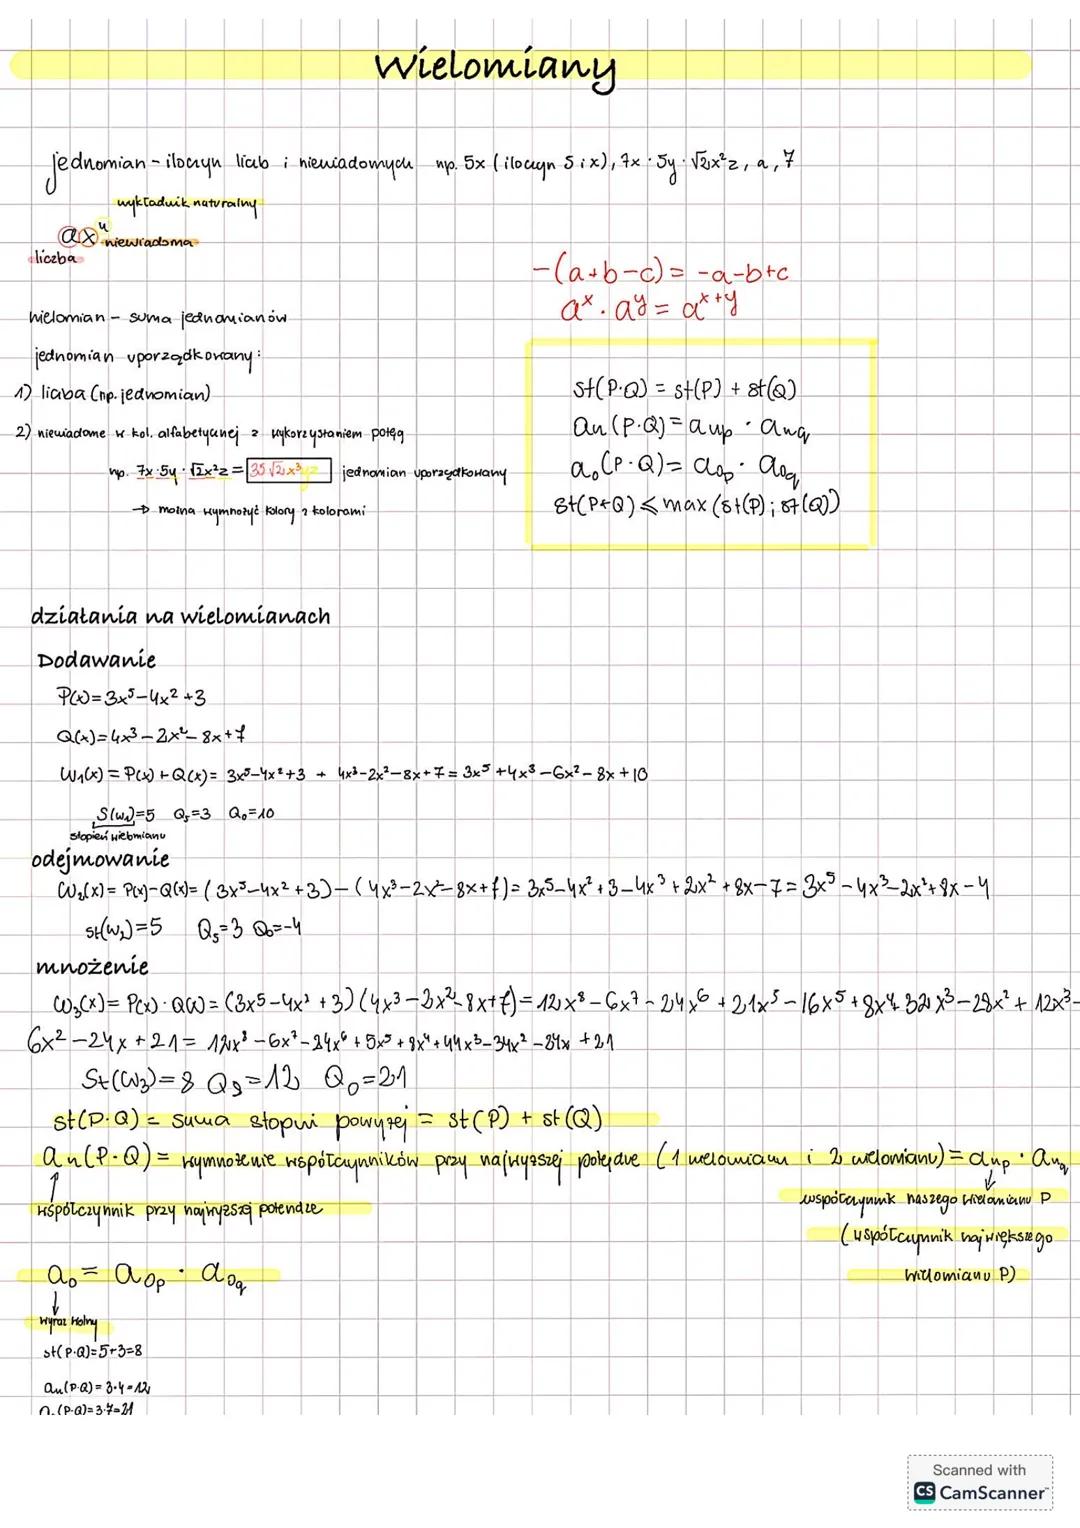 Wielomiany
jednomian - iloczyn liczb i niewiadomych np. 5x (iloczyn 5 i x), 7x · 5y · √2x²z, a, 7
wykładnik naturalny
axⁿ niewiadoma
liczba
-(a+b-c) = -a-b+c
aˣ · aʸ = aˣ⁺ʸ
wielomian - suma jednomianów
jednomian uporządkowany:
1) liczba (np. jednomian)
2) niewiadome w kol. alfabetycznej z wykorzystaniem potęg
np. 7x·5y·√2x²z = 35√2x³yz jednomian uporządkowany
→ można wymnożyć kolory z kolorami
st(P·Q) = st(P) + st(Q)
an(P·Q) = anp · anq
a₀(P·Q) = a₀p · a₀q
st(P+Q) ⩽ max (st(P); st(Q))
działania na wielomianach
Dodawanie
P(x)=3x⁵-4x²+3
Q(x)=4x³-2x²-8x+7
W₁(x) = P(x)+Q(x) = 3x⁵-4x²+3 + 4x³-2x²-8x+7 = 3x⁵+4x³-6x²-8x+10
S(w₁)=5 Q₅=3 Q₀=10
stopień wielomianu
odejmowanie
W₂(x) = P(x)-Q(x) = (3x⁵-4x²+3)-(4x³-2x²-8x+7) = 3x⁵-4x²+3-4x³+2x²+8x-7 = 3x⁵-4x³-2x²+8x-4
st(W₂)=5 Q₅=3 Q₀=-4
mnożenie
W₃(x) = P(x)·Q(x) = (3x⁵-4x²+3)(4x³-2x²-8x+7) = 12x⁸-6x⁷-24x⁶+21x⁵-16x⁵+8x⁴+32x³-28x²+12x³-
6x²-24x+21 = 12x⁸-6x⁷-24x⁶+5x⁵+8x⁴+44x³-34x²-24x+21
St(W₃)=8 Q₈=12 Q₀=21
st(P·Q) = suma stopni powyżej = st(P) + st(Q)
an(P·Q) = wymnożenie współczynników przy najwyższej potędze (1 wielomianu i 2 wielomianu) = anp · anq
współczynnik przy najwyższej potendze
współczynnik naszego wielomianu P
(współczynnik największego
wielomianu P)
a₀ = a₀p · a₀q
wyraz wolny
st(P·Q)=5+3=8
an(P·Q)=3·4=12
(P·Q)=3·7=21
Scanned with
CS CamScanner